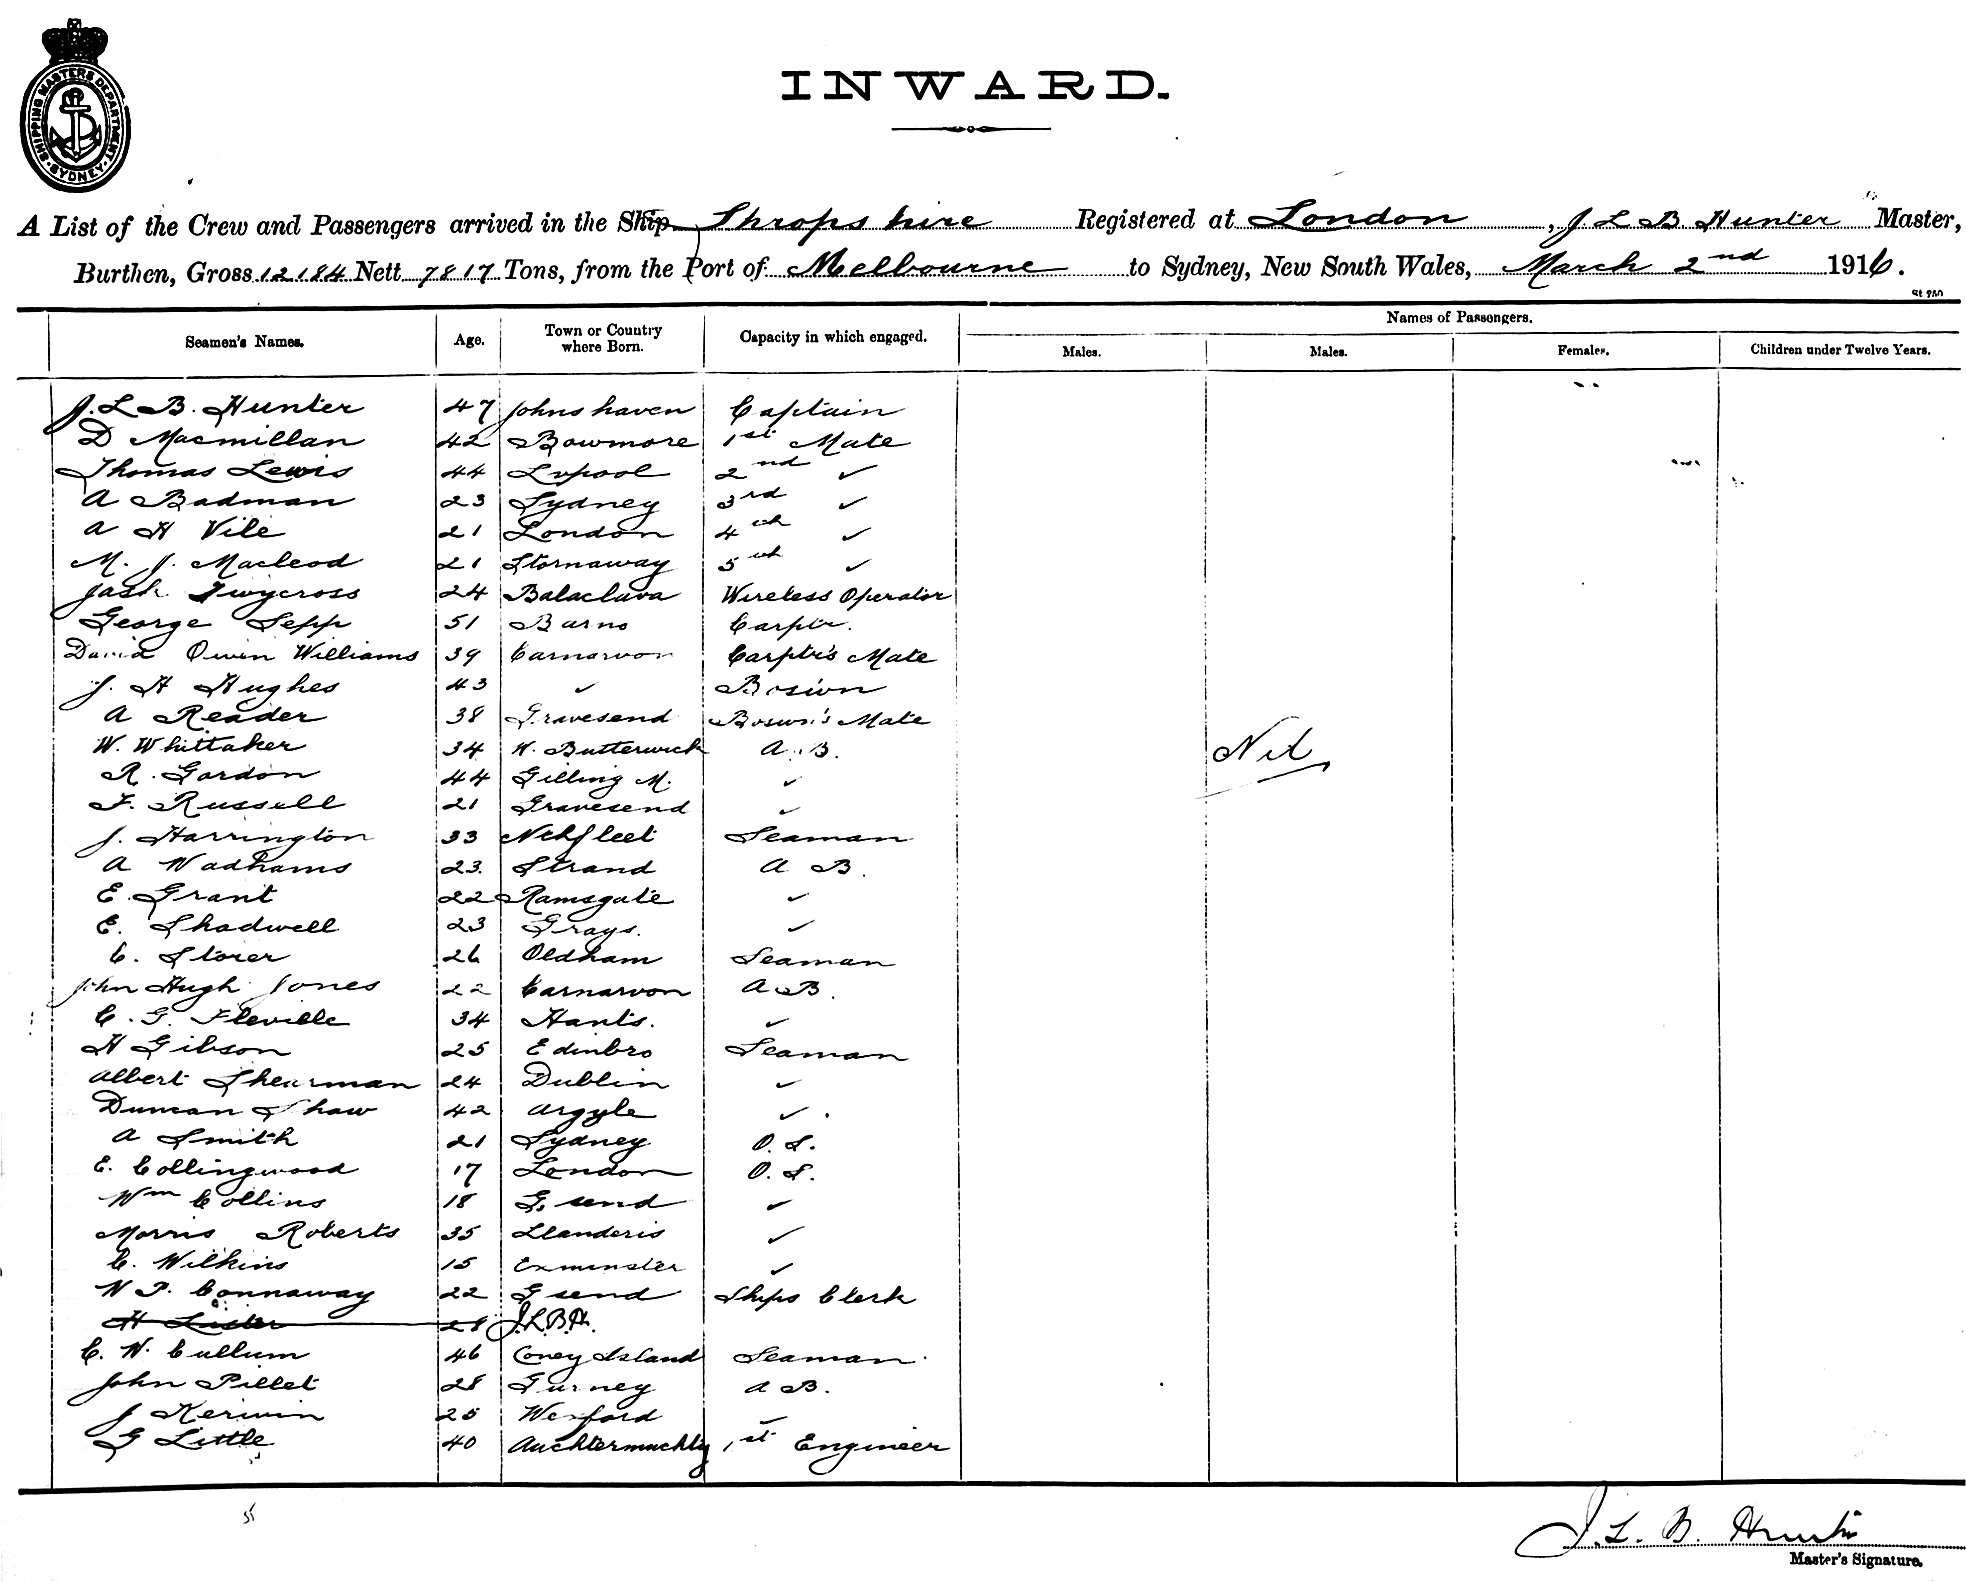 SHIPPING MASTERS DEPARTMENT
SYDNEY
INWARD.
A List of the Crew and Passengers arrived in the Ship Shropshire Registered at London, J L B. Hunter Master,
Burthen, Gross 12184 Nett 7817 Tons, from the Port of Melbourne to Sydney, New South Wales, March 2nd 1916.
St 250
Seamen's Names. Age. Town or Country where Born. Capacity in which engaged. Names of Passengers.
Males. Males. Females. Children under Twelve Years.
J. L B. Hunter 47 Johnshaven Captain
D Macmillan 42 Bowmore 1st Mate
Thomas Lewis 44 Lvpool 2nd ✓
A Badman 23 Sydney 3rd ✓
A H Vile 21 London 4th ✓
M. J. Macleod 21 Stornaway 5th ✓
Jack Twycross 24 Balaclava Wireless Operator
George Sepp 51 Barno Carptr.
David Owen Williams 39 Carnarvon Carptr's Mate
J. H Hughes 43 ✓ Bosiwn
A Reader 38 Gravesend Boswn's Mate
W. Whittaker 34 W. Butterwick A. B.
R. Gordon 44 Gilling M. ✓
F. Russell 21 Gravesend ✓
Nil
J. Harrington 33 Nthfleet Seaman
A Wadhams 23. Strand A B.
E. Grant 22 Ramsgate ✓
E. Shadwell 23 Grays. ✓
C. Storer 26 Oldham Seaman
John Hugh Jones 22 Carnarvon A B.
C. G. Fleville 34 Hants. ✓
H Gibson 25 Edinbro Seaman
Albert Shearman 24 Dublin ✓
Duncan Shaw 42 Argyle ✓
A Smith 21 Sydney O. S.
E. Collingwood 17 London O. S.
Wm Collins 18 G. send ✓
Morris Roberts 35 Llanderis ✓
C. Wilkins 15 Exminster ✓
N P. Connaway 22 G send Ships Clerk
H Lister 28 J.L.B.H.
C. W. Cullum 46 Coney Island Seaman.
John Pillet 28 Gurney A B.
J Kerwin 25 Wexford ✓
G Little 40 Auchtermuchty 1st Engineer
J. L. B. Hunter
Master's Signature.